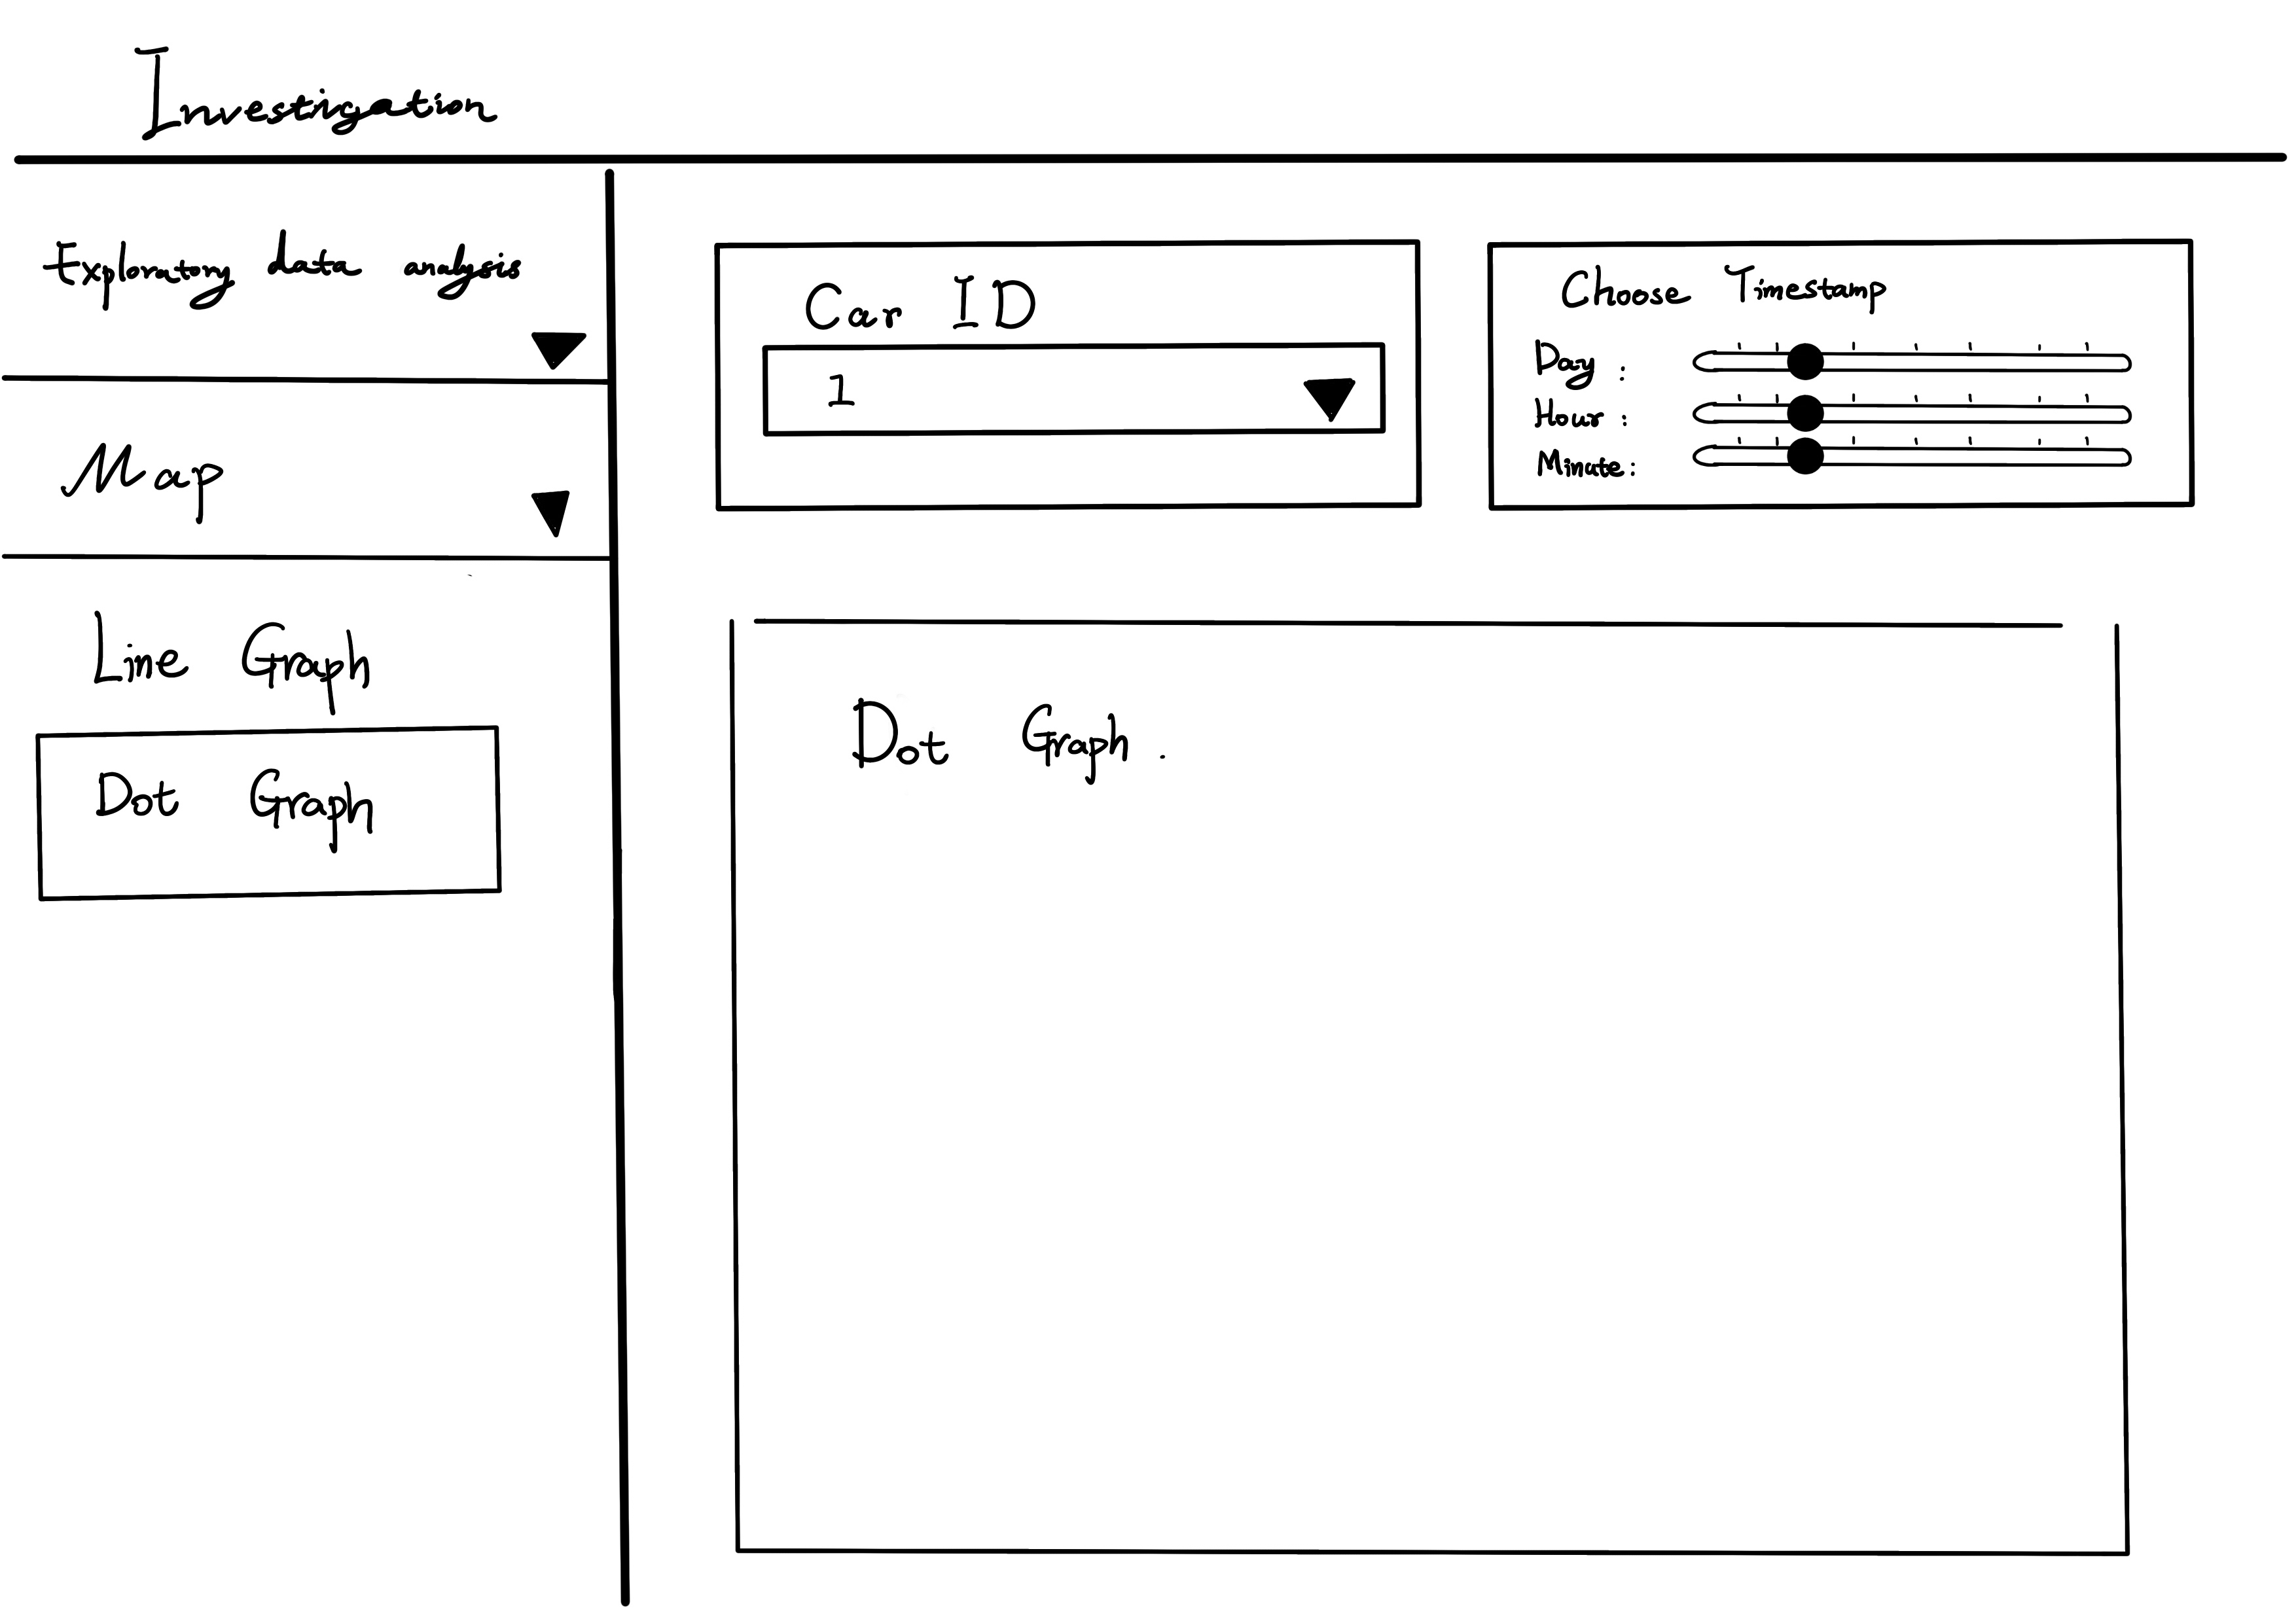 Investigation
Exploratory data analysis
Map
Line Graph
Dot Graph
Car ID
1
Choose Timestamp
Day :
Hour :
Minute:
Dot Graph.